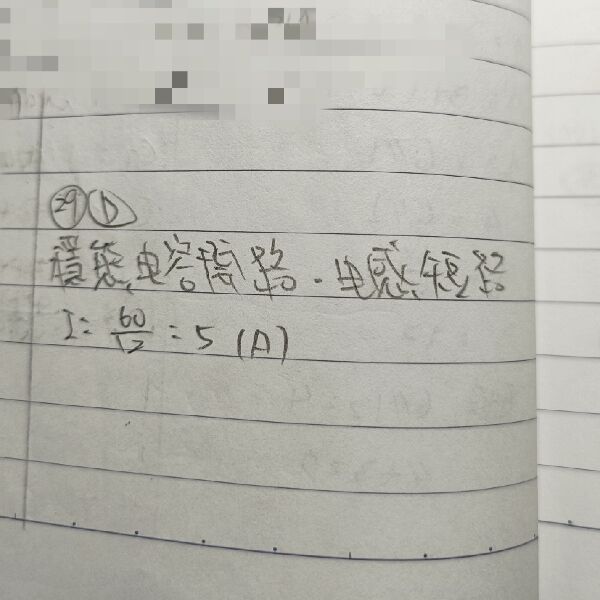 ㉙ Ⓓ
穩態電容開路．電感短路
I = 60/12 = 5 (A)